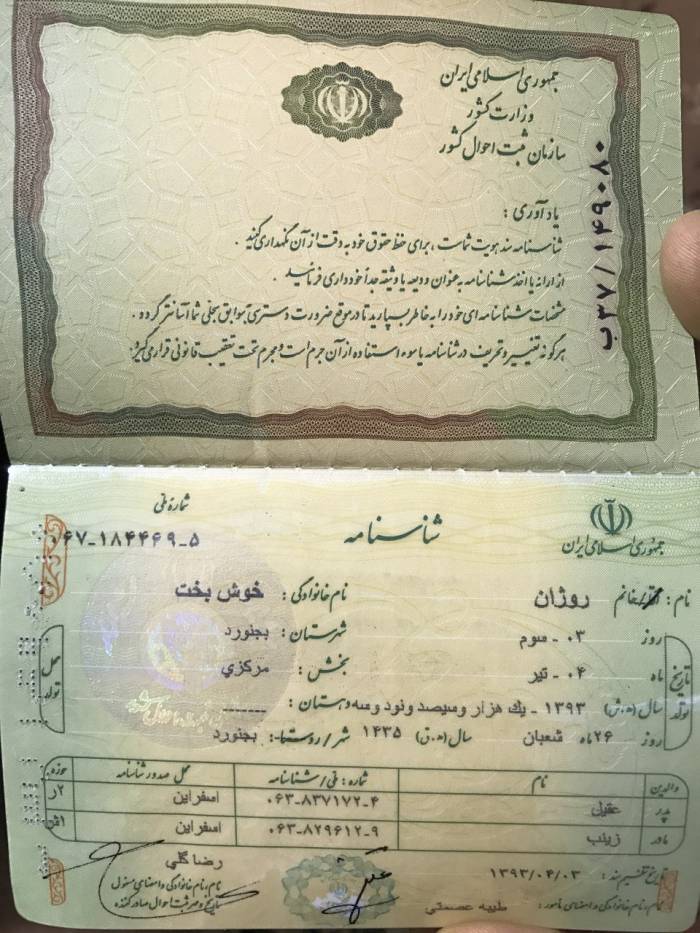 جمهوری اسلامی ایران
وزارت کشور
سازمان ثبت احوال کشور
ب۳۷/۱۴۹۰۸۰
یادآوری :
شناسنامه سند هویت شماست ، برای حفظ حقوق خود به دقت از آن نگهداری کنید .
از ارائه یا اخذ شناسنامه به عنوان ودیعه یا وثیقه جداً خودداری فرمائید .
مشخصات شناسنامه ای خود را به خاطر بسپارید تا در موقع ضرورت دسترسی به سوابق سجلی شما آسانتر گردد .
هرگونه تغییر و تحریف در شناسنامه یا سوء استفاده از آن جرم است و مجرم تحت تعقیب قانونی قرار می گیرد .
جمهوری اسلامی ایران
شناسنامه
شماره ملی
۰۶۷-۱۸۴۴۶۹-۵
نام : آقا/خانم روژان نام خانوادگی : خوش بخت
تاریخ تولد
محل تولد
روز ۰۳ - سوم شهرستان : بجنورد
ماه ۰۴ - تیر بخش : مرکزي
سال (ه.ش) ۱۳۹۳ - یك هزار وسیصد ونود وسه دهستان : -------
روز ۲۶ ماه شعبان سال (ه.ق) ۱۴۳۵ شهر/روستا : بجنورد
والدین نام شماره : ملی/شناسنامه محل صدور شناسنامه حوزه
پدر عقیل ۰۶۳-۸۳۷۱۷۲-۴ اسفراین ۲ر
مادر زینب ۰۶۳-۸۲۹۶۱۲-۹ اسفراین
تاریخ تنظیم سند : ۱۳۹۳/۰۴/۰۳
نام ، نام خانوادگی و امضای مامور : طیبه عصمتی
رضا گلی
نام ، نام خانوادگی و امضای مسئول
تاریخ و مهر ثبت احوال صادر کننده